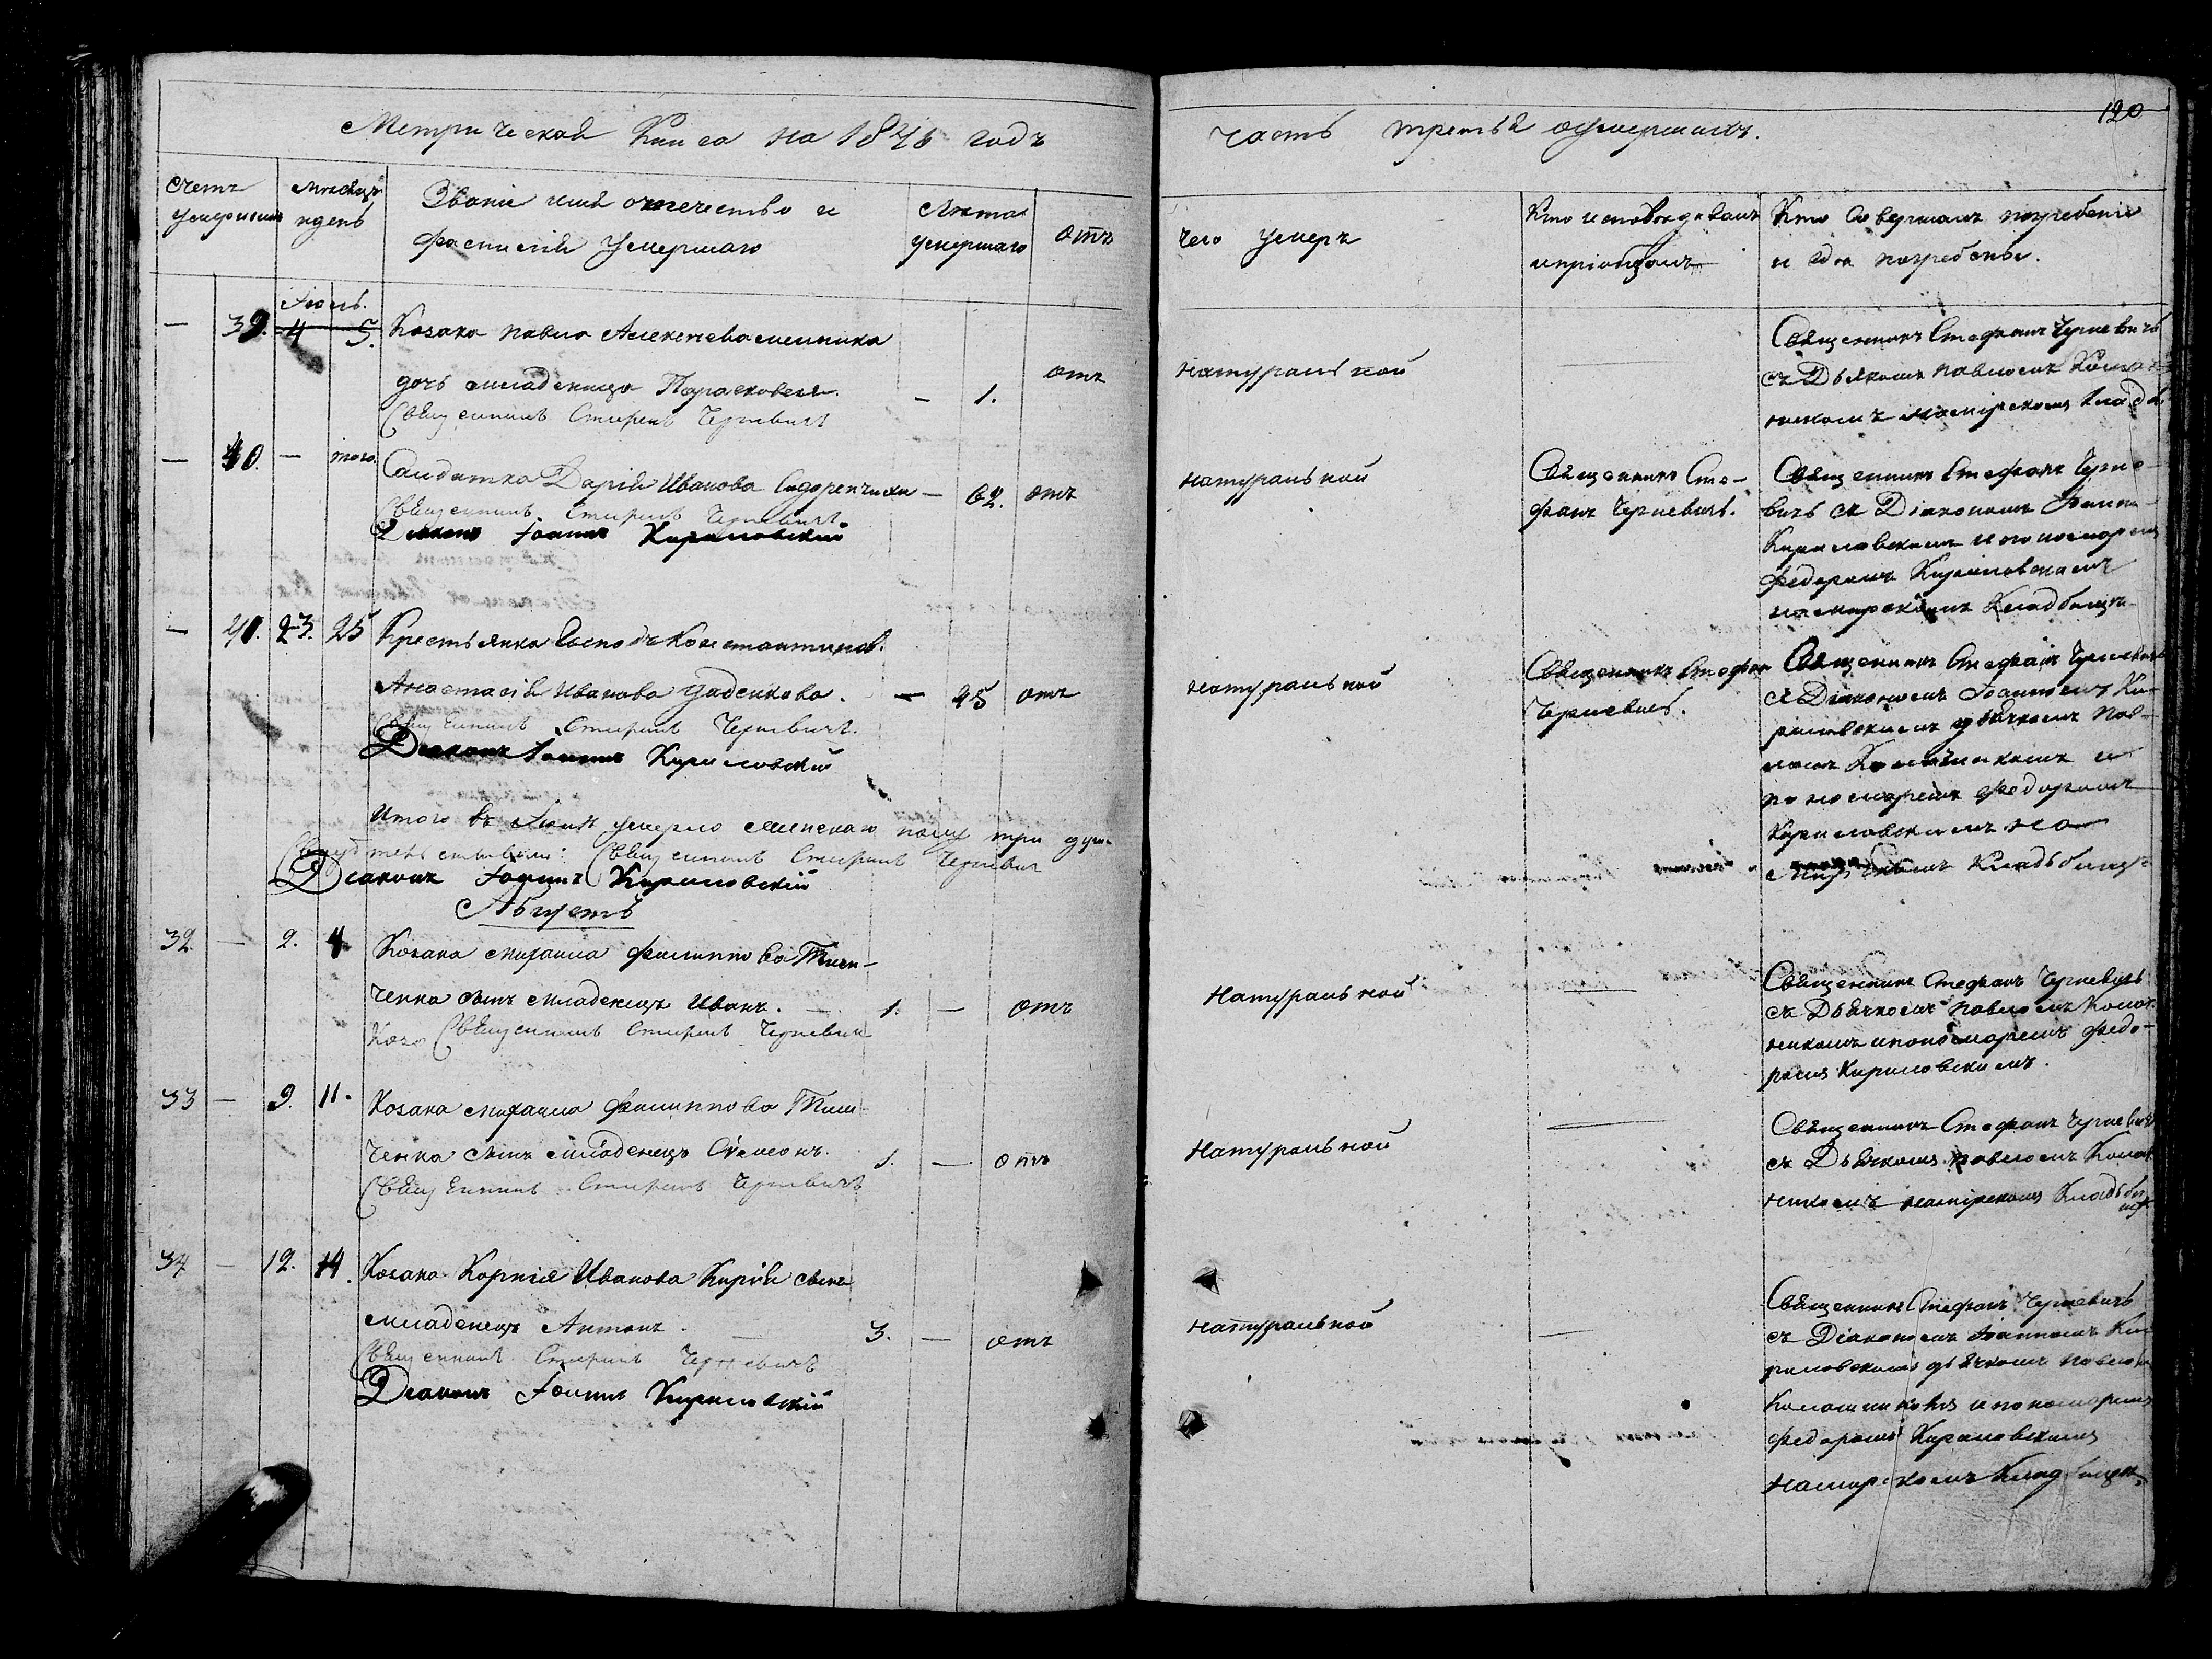 120
Метрической Книга на 1846 годъ
часть третья оумершихъ.
счетъ умершихъ
мѣсяцъ и день
Званіе имя отечество и фамилія умершаго
Лѣта умершаго
отъ
чего умеръ
Кто исповѣдовалъ и пріобщалъ
Кто совершалъ погребеніе и гдѣ погребены.
Іюль.
— 39. 4 5. Козака Павла Алексѣева
дочь младеница Парасковея. — 1. отъ
Священникъ Стефанъ Черневичъ
натуральной
—
Священникъ Стефанъ Черневичъ
съ Дьячкомъ Павломъ
— 40. — того. Салдатка Дарія Иванова — 62. отъ
Священникъ Стефанъ Черневичъ.
Діаконъ Іоаннъ Кириловскій
натуральной
Священникъ Сте-
фанъ Черневичъ.
Священникъ Стефанъ Черне-
вичъ съ Діакономъ
Кириловскимъ и пономаремъ
Федоромъ Кириловскимъ
на мирскомъ Кладбищѣ
— 41. 23. 25 Крестьянка Госпо
Анастасія Иванова — 45 отъ
Священникъ Стефанъ Черневичъ.
Діаконъ Іоаннъ Кириловскій
натуральной
Священникъ Стефан
Черневичъ.
Священникъ Стефанъ Черневичъ
съ Діакономъ Іоанномъ Ки-
риловскимъ дьячкомъ Пав-
ломъ и
пономаремъ Федоромъ
Кириловскимъ на
Кладьбищѣ
Итого въ Іюлѣ умерло женскаго полу три души
Священникъ Стефанъ Черневичъ
Діаконъ Іоаннъ Кириловскій
Августъ
32 — 2. 4 Козака Михаила Филиппова Тим-
ченка сынъ младенецъ Иванъ. — 1. — отъ
Священникъ Стефанъ Черневичъ
Натуральной
—
Священникъ Стефанъ Черневичъ
съ Дьячкомъ Павломъ Колош-
никомъ и пономаремъ Федо-
ромъ Кириловскимъ.
33 — 9. 11. Козака Михаила Филиппова Тим-
ченка сынъ младенецъ Симеонъ. 1. — отъ
Священникъ Стефанъ Черневичъ
Натуральной
—
Священникъ Стефанъ Черневичъ
съ Дьячкомъ Павломъ Колош
никомъ на мірскомъ Кладьби
щѣ
34 — 12. 14. Козака Корнія Иванова Кирія сынъ
младенецъ Антонъ. — 3. — отъ
Священникъ Стефанъ Черневичъ
Діаконъ Іоаннъ Кириловскій
натуральной
—
Священникъ Стефанъ Черневичъ
съ Діакономъ Іоанномъ Ки
риловскимъ дьячкомъ Павломъ
и пономаремъ
Федоромъ Кириловскимъ
на мирскомъ Кладбищѣ.